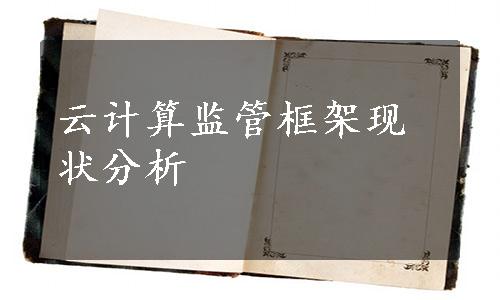 云计算监管框架现
状分析